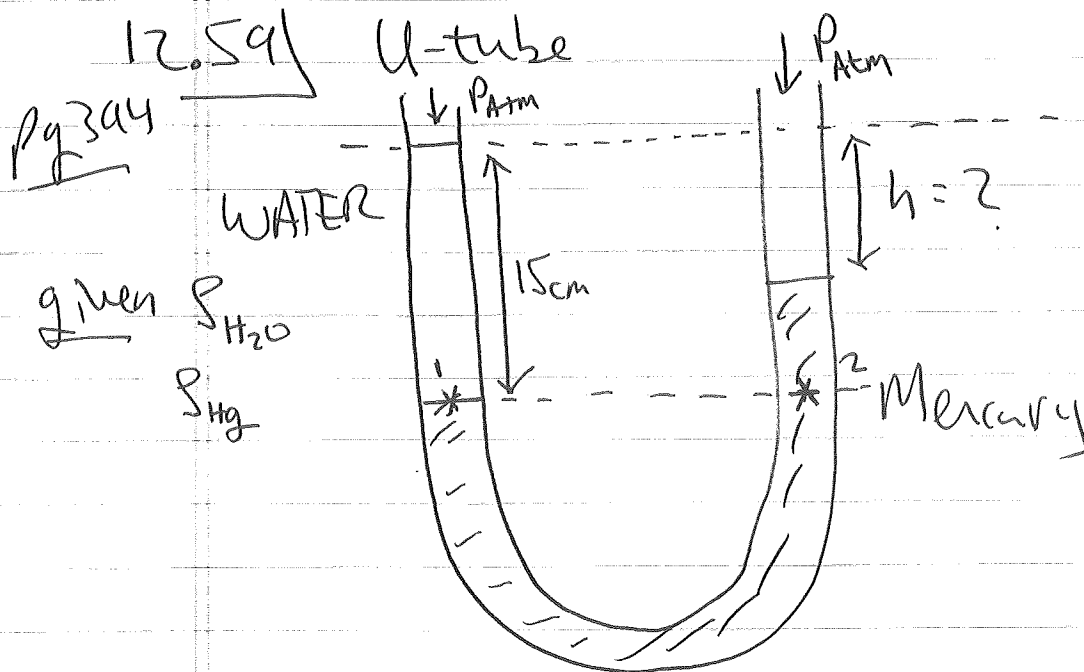 12.59) U-tube
Pg 394
P_Atm
P_Atm
WATER
15cm
h = ?
given ρ_H₂O
ρ_Hg
1
2
Mercury